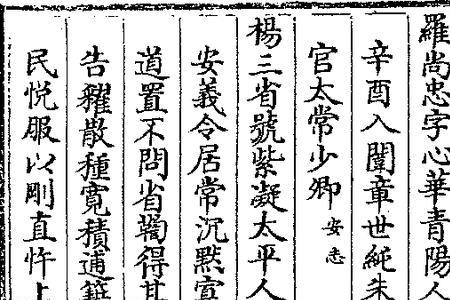 羅尚忠字心華青陽人
辛酉入闈章世純未
官太常少卿 安志
楊三省號紫凝太平人
安義令居常沉默宣
道置不問省鞫得其
告糴散種寬積逋籍
民悅服以剛直忤上